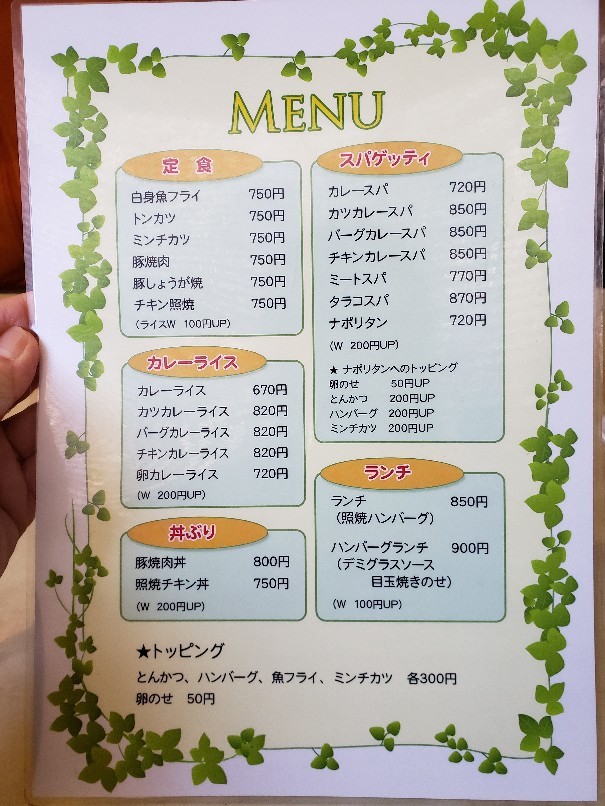 MENU
定食
白身魚フライ 750円
トンカツ 750円
ミンチカツ 750円
豚焼肉 750円
豚しょうが焼 750円
チキン照焼 750円
(ライスW 100円UP)
カレーライス
カレーライス 670円
カツカレーライス 820円
バーグカレーライス 820円
チキンカレーライス 820円
卵カレーライス 720円
(W 200円UP)
丼ぶり
豚焼肉丼 800円
照焼チキン丼 750円
(W 200円UP)
スパゲッティ
カレースパ 720円
カツカレースパ 850円
バーグカレースパ 850円
チキンカレースパ 850円
ミートスパ 770円
タラコスパ 870円
ナポリタン 720円
(W 200円UP)
★ ナポリタンへのトッピング
卵のせ 50円UP
とんかつ 200円UP
ハンバーグ 200円UP
ミンチカツ 200円UP
ランチ
ランチ 850円
(照焼ハンバーグ)
ハンバーグランチ 900円
(デミグラスソース
目玉焼きのせ)
(W 100円UP)
★トッピング
とんかつ、ハンバーグ、魚フライ、ミンチカツ 各300円
卵のせ 50円